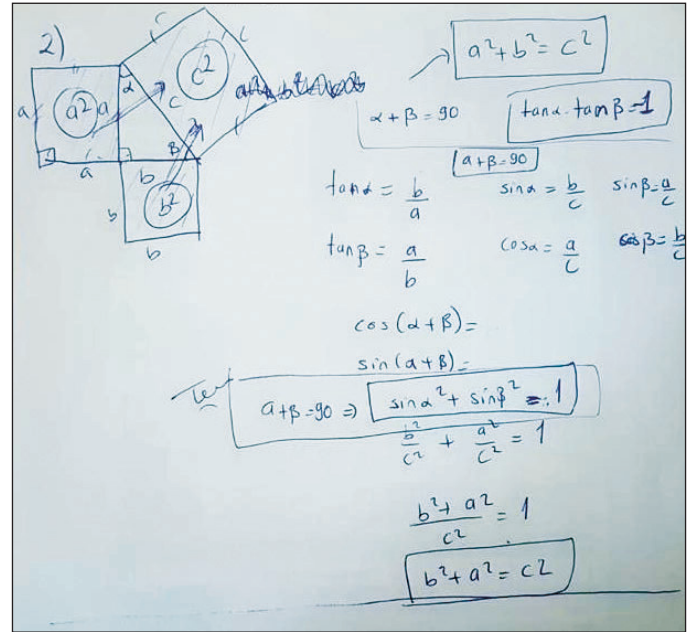 2)
c c
c²
a² + b² = c²
α
a a² a c
α + β = 90 tanα . tanβ = 1
β
a b
a+β=90
b b²
b
tanα = b/a sinα = b/c sinβ = a/c
tanβ = a/b cosα = a/c cosβ = b/c
cos(α + β) =
sin(α + β) =
a+β=90 => sinα² + sinβ² = 1
b²/c² + a²/c² = 1
b² + a²/c² = 1
b² + a² = c2